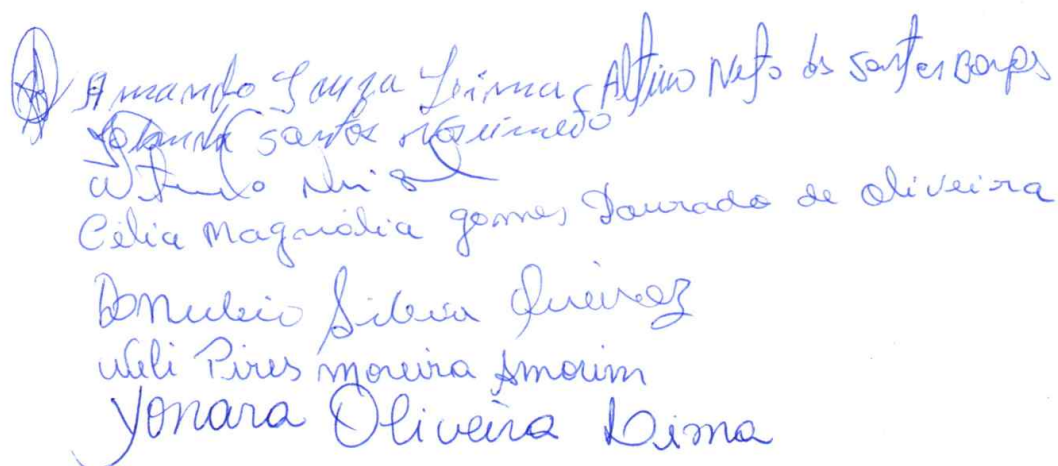 Armando Souza Lima, Altino Neto dos Santos Borges
Santos Nascimento
Célia Magnólia gomes Dourado de Oliveira
Donubio Silva Queiroz
Weli Pires moreira Amorim
Yonara Oliveira Lima